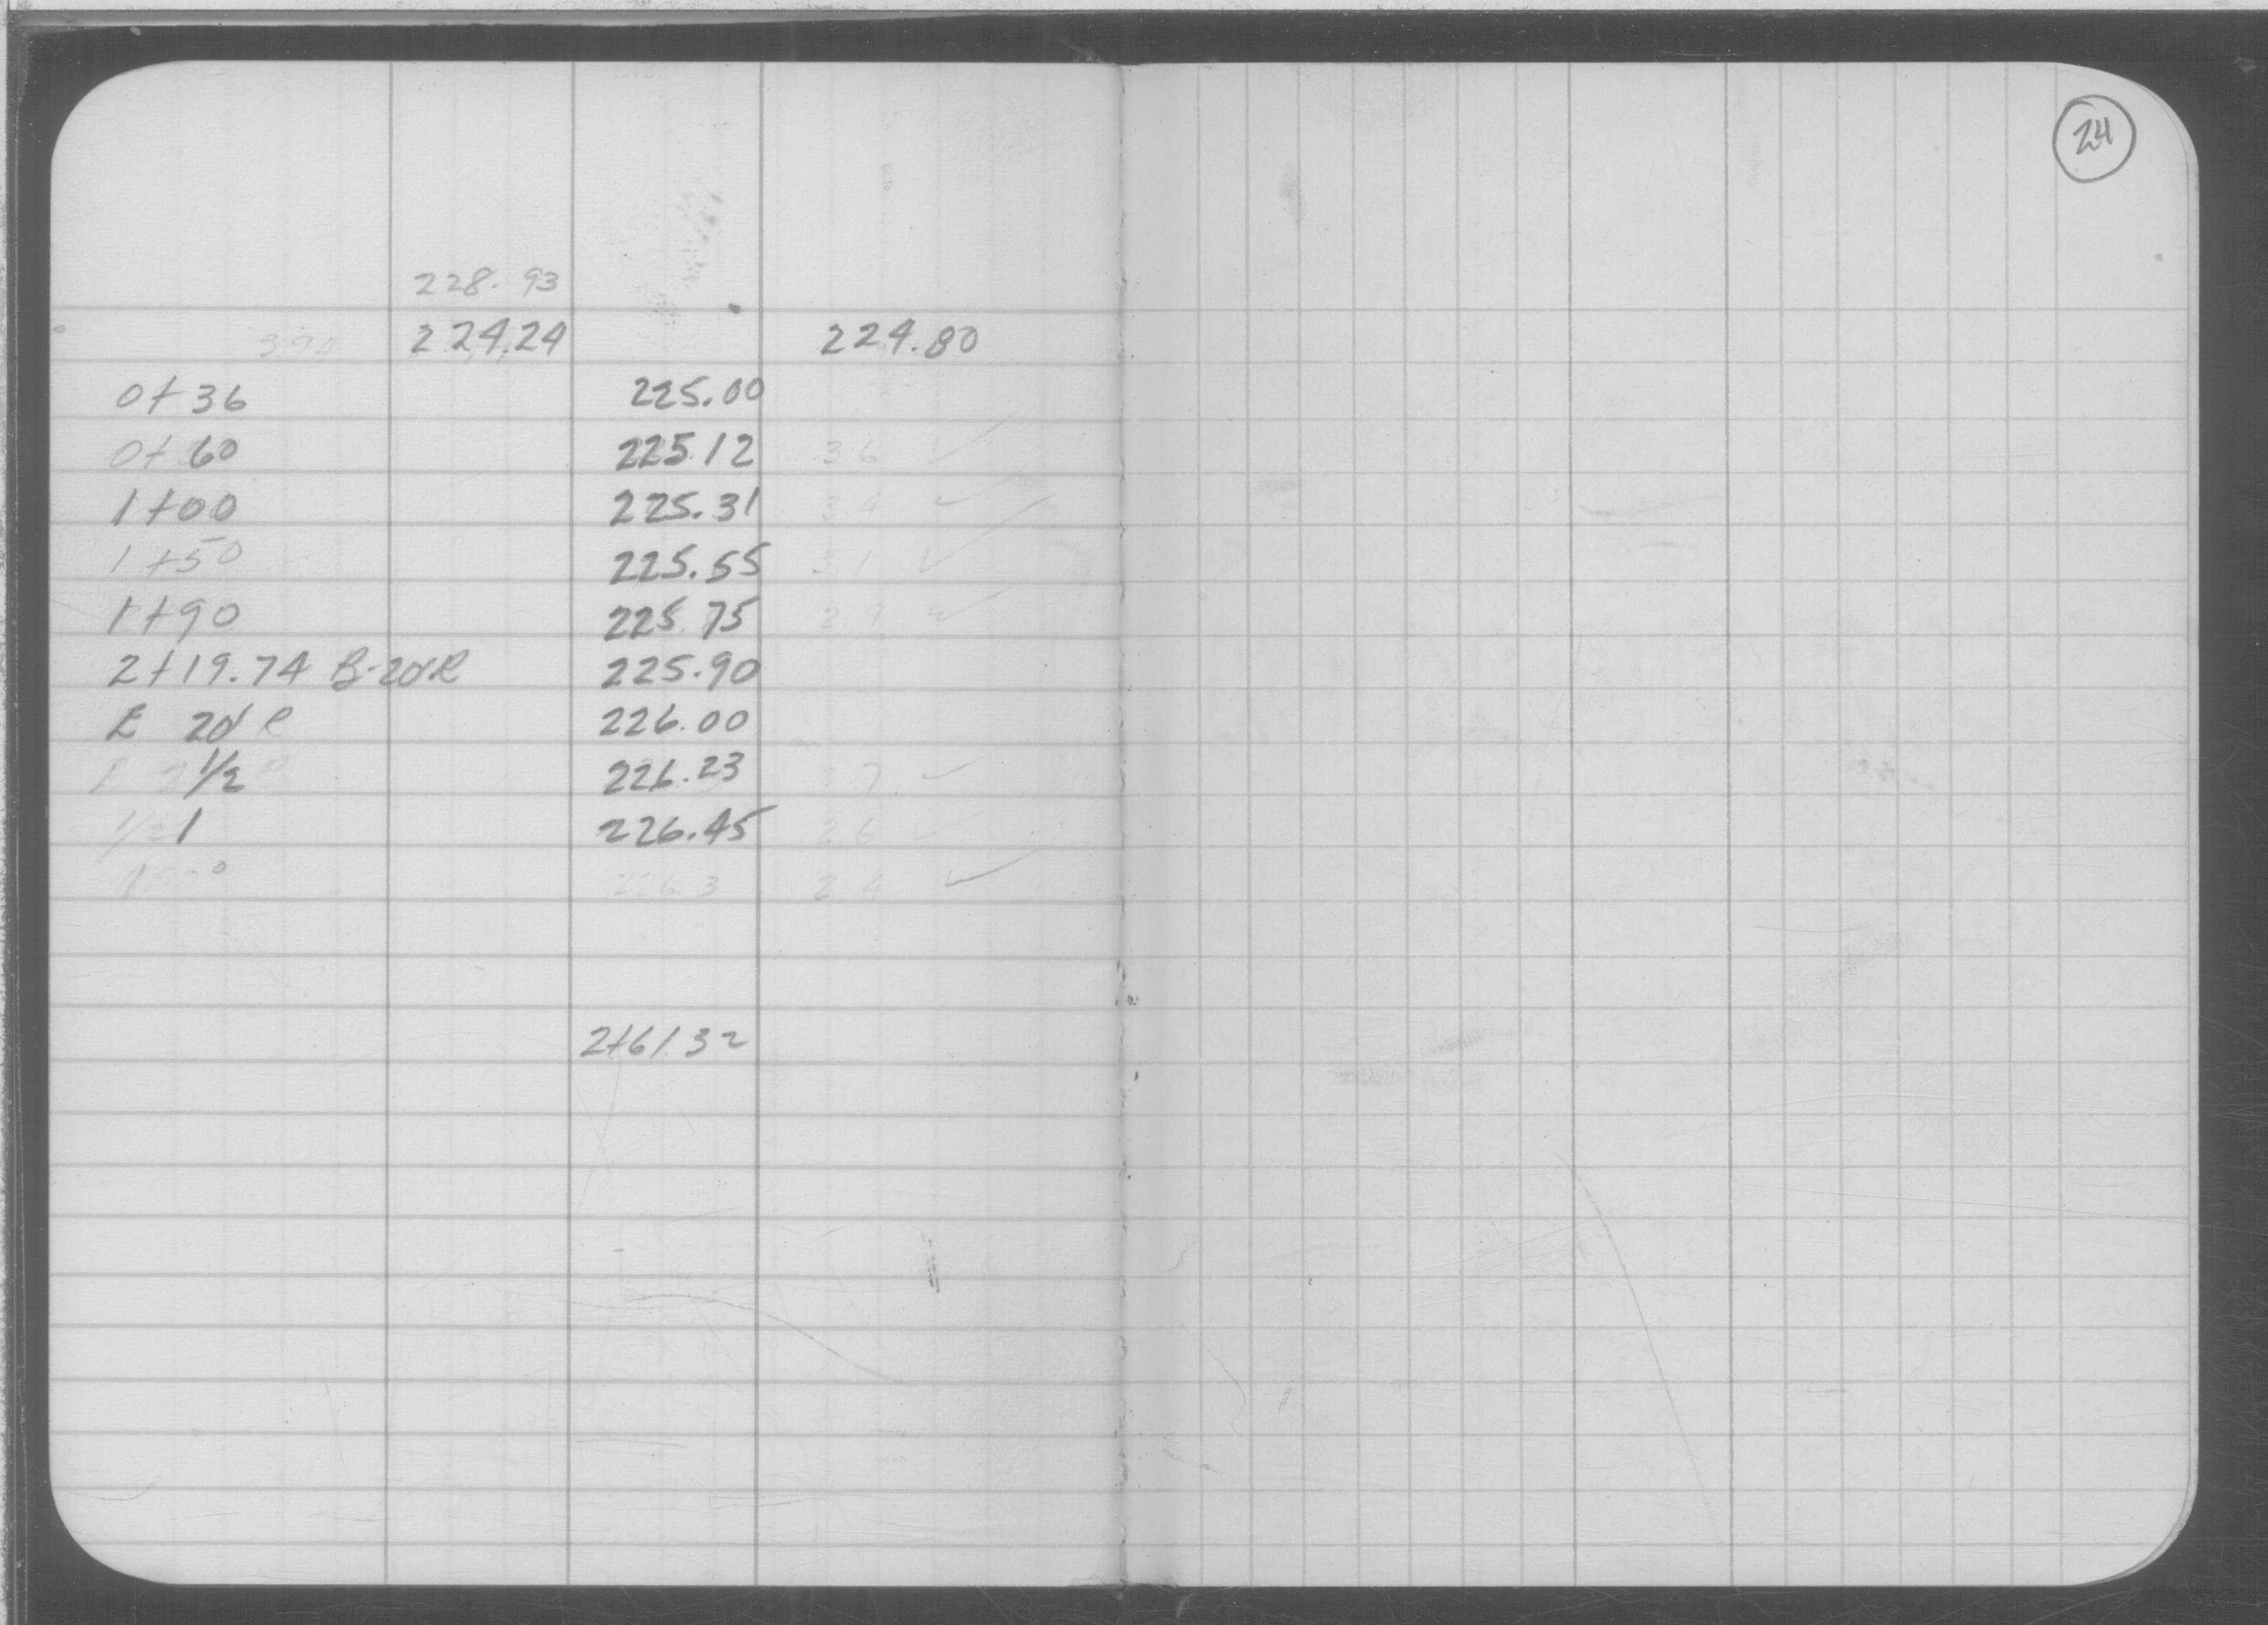 24
228.93
224.24 224.80
0+36 225.00
0+60 225.12 3 6 ✓
1+00 225.31 3 4 ✓
1+50 225.55 3 1 ✓
1+90 225.75 2 9 ✓
2+19.74 B-20'R 225.90
E 20' R 226.00
1/2 226.23 7 ✓
1 226.45 2 6 ✓
226.3 2 4 ✓
2+61 32